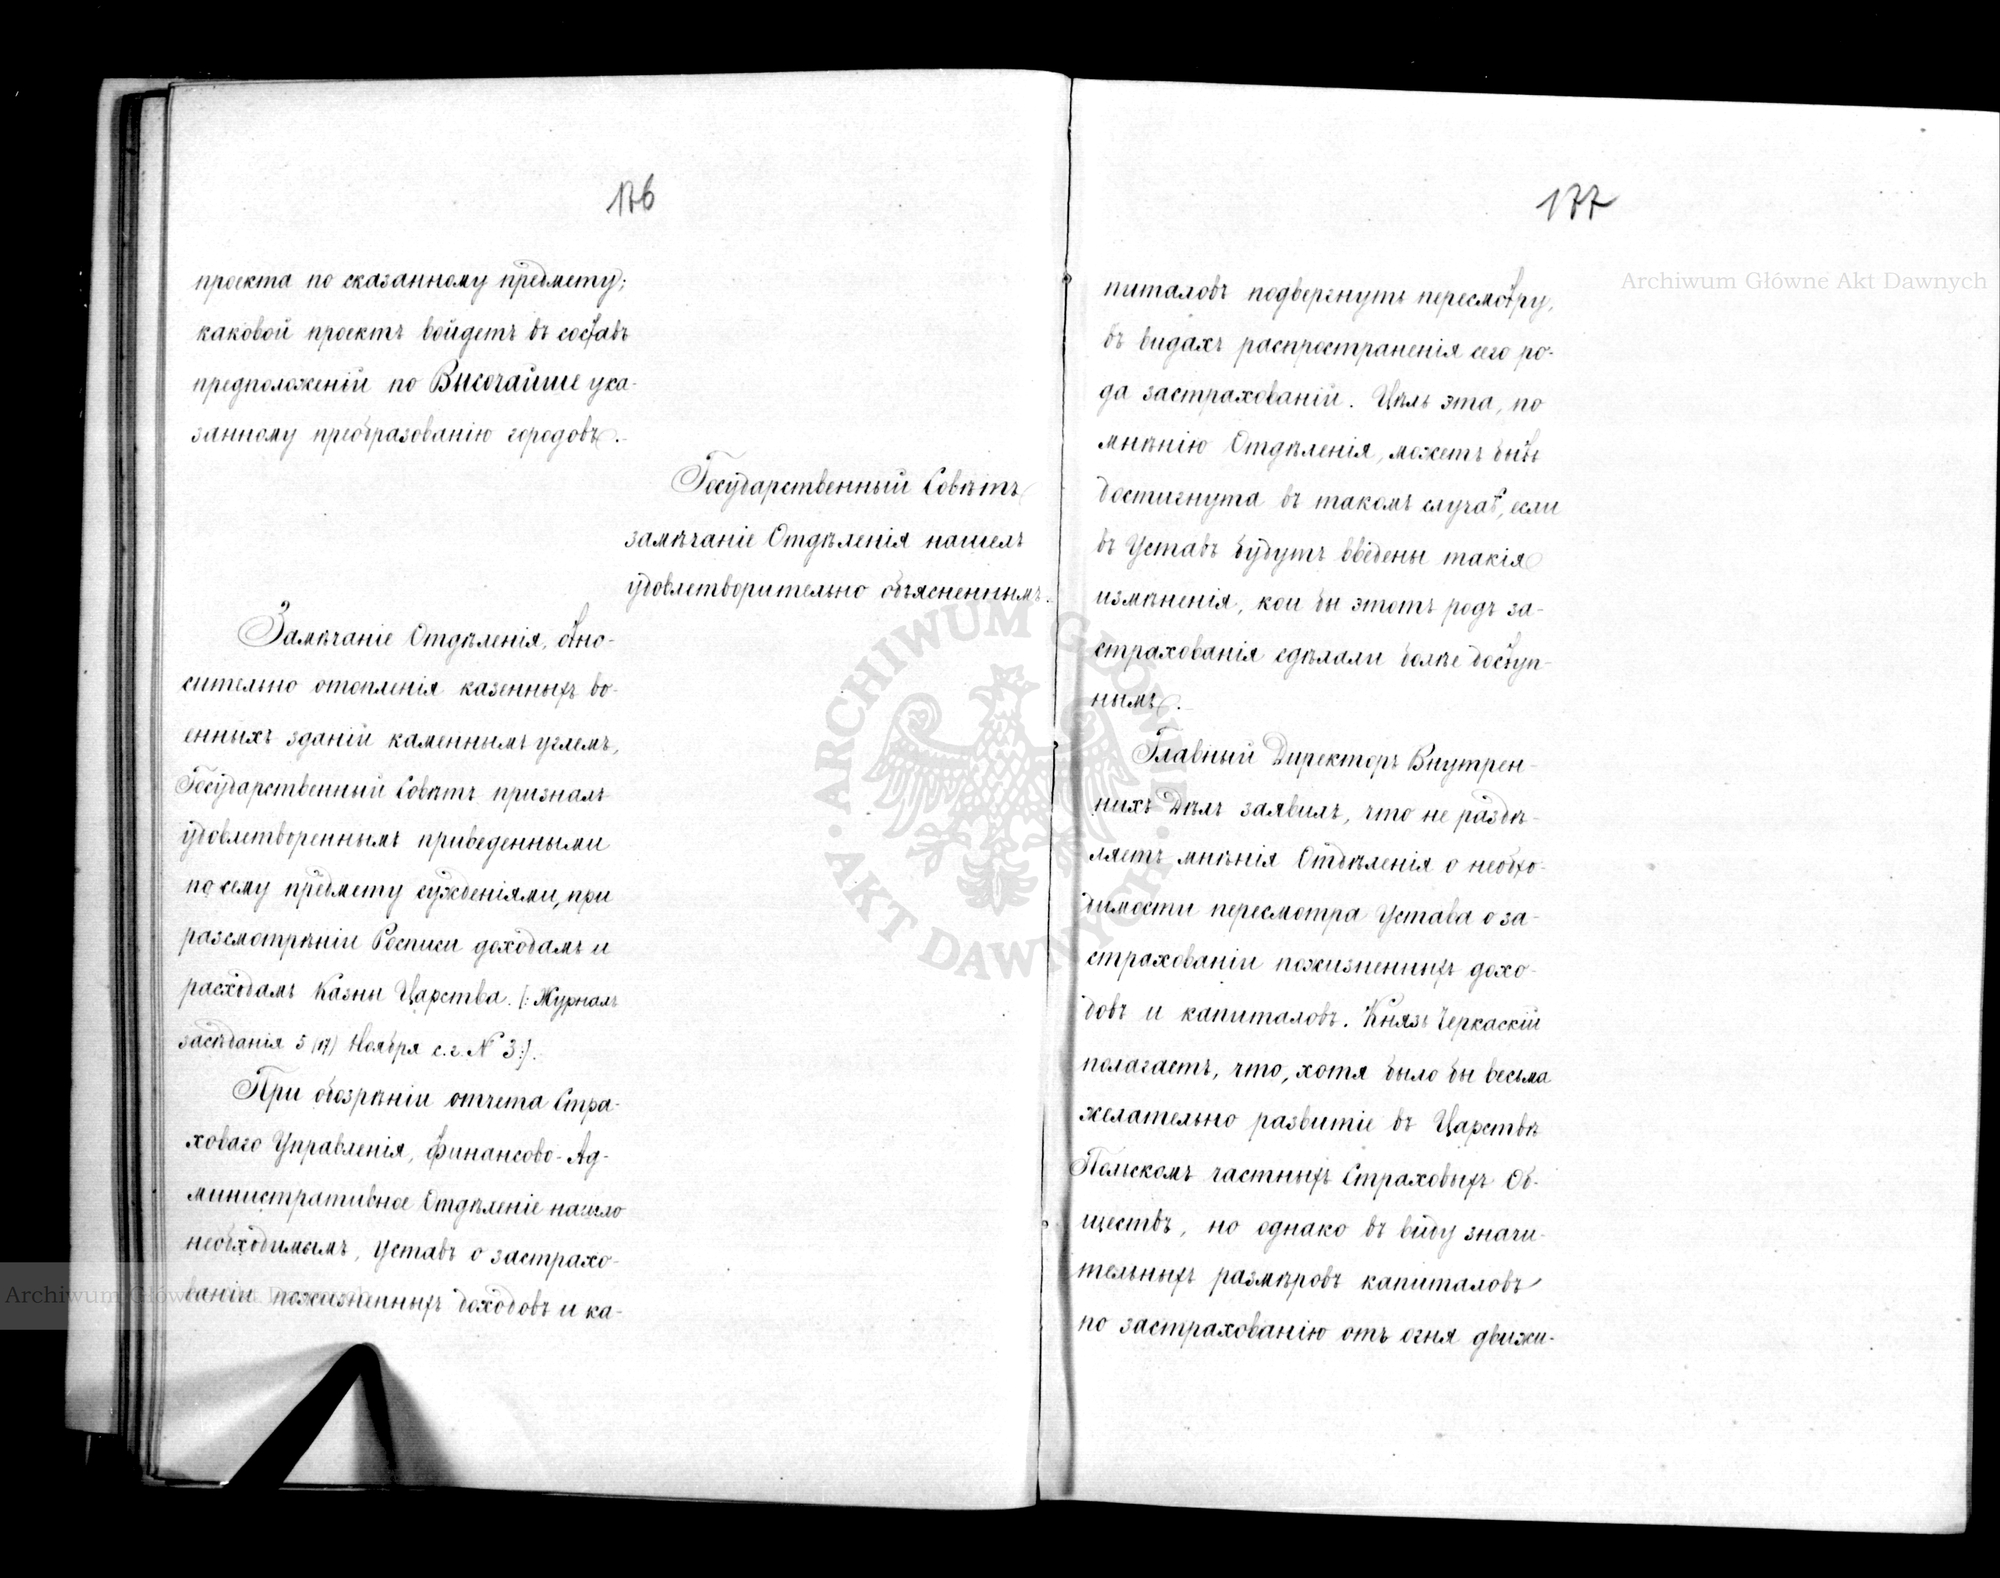 176
проекта по сказанному предмету;
каковой проектъ войдетъ въ составъ
предположеній по Высочайше ука-
занному преобразованію городовъ.
Государственный Совѣтъ
замѣчаніе Отдѣленія нашелъ
удовлетворительно объясненнымъ.
Замѣчаніе Отдѣленія, отно-
сительно отопленія казенныхъ во-
енныхъ зданій каменнымъ углемъ,
Государственный Совѣтъ призналъ
удовлетвореннымъ приведенными
по сему предмету сужденіями, при
разсмотрѣніи Росписи доходамъ и
расходамъ Казны Царства. (: Журналъ
засѣданія 5 (17) Ноября с. г. № 3:).
При обозрѣніи отчета Стра-
ховаго Управленія, Финансово-Ад-
министративное Отдѣленіе нашло
необходимымъ, уставъ о застрахо-
ваніи пожизненныхъ доходовъ и ка-
177
питаловъ подвергнуть пересмотру,
въ видахъ распространенія сего ро-
да застрахованій. Цѣль эта, по
мнѣнію Отдѣленія, можетъ быть
достигнута въ такомъ случаѣ, если
въ Уставъ будутъ введены такія
измѣненія, кои бы этотъ родъ за-
страхованія сдѣлали болѣе доступ-
нымъ.
Главный Директоръ Внутрен-
нихъ Дѣлъ заявилъ, что не раздѣ-
ляетъ мнѣнія Отдѣленія о необхо-
димости пересмотра Устава о за-
страхованіи пожизненныхъ дохо-
довъ и капиталовъ. Князь Черкаскій
полагаетъ, что, хотя было бы весьма
желательно развитіе въ Царствѣ
Польскомъ частныхъ Страховыхъ Об-
ществъ, но однако въ виду значи-
тельныхъ размѣровъ капиталовъ
по застрахованію отъ огня движи-
Archiwum Główne Akt Dawnych
ARCHIWUM GŁÓWNE · AKT DAWNYCH ·
Archiwum Główne Akt Dawnych